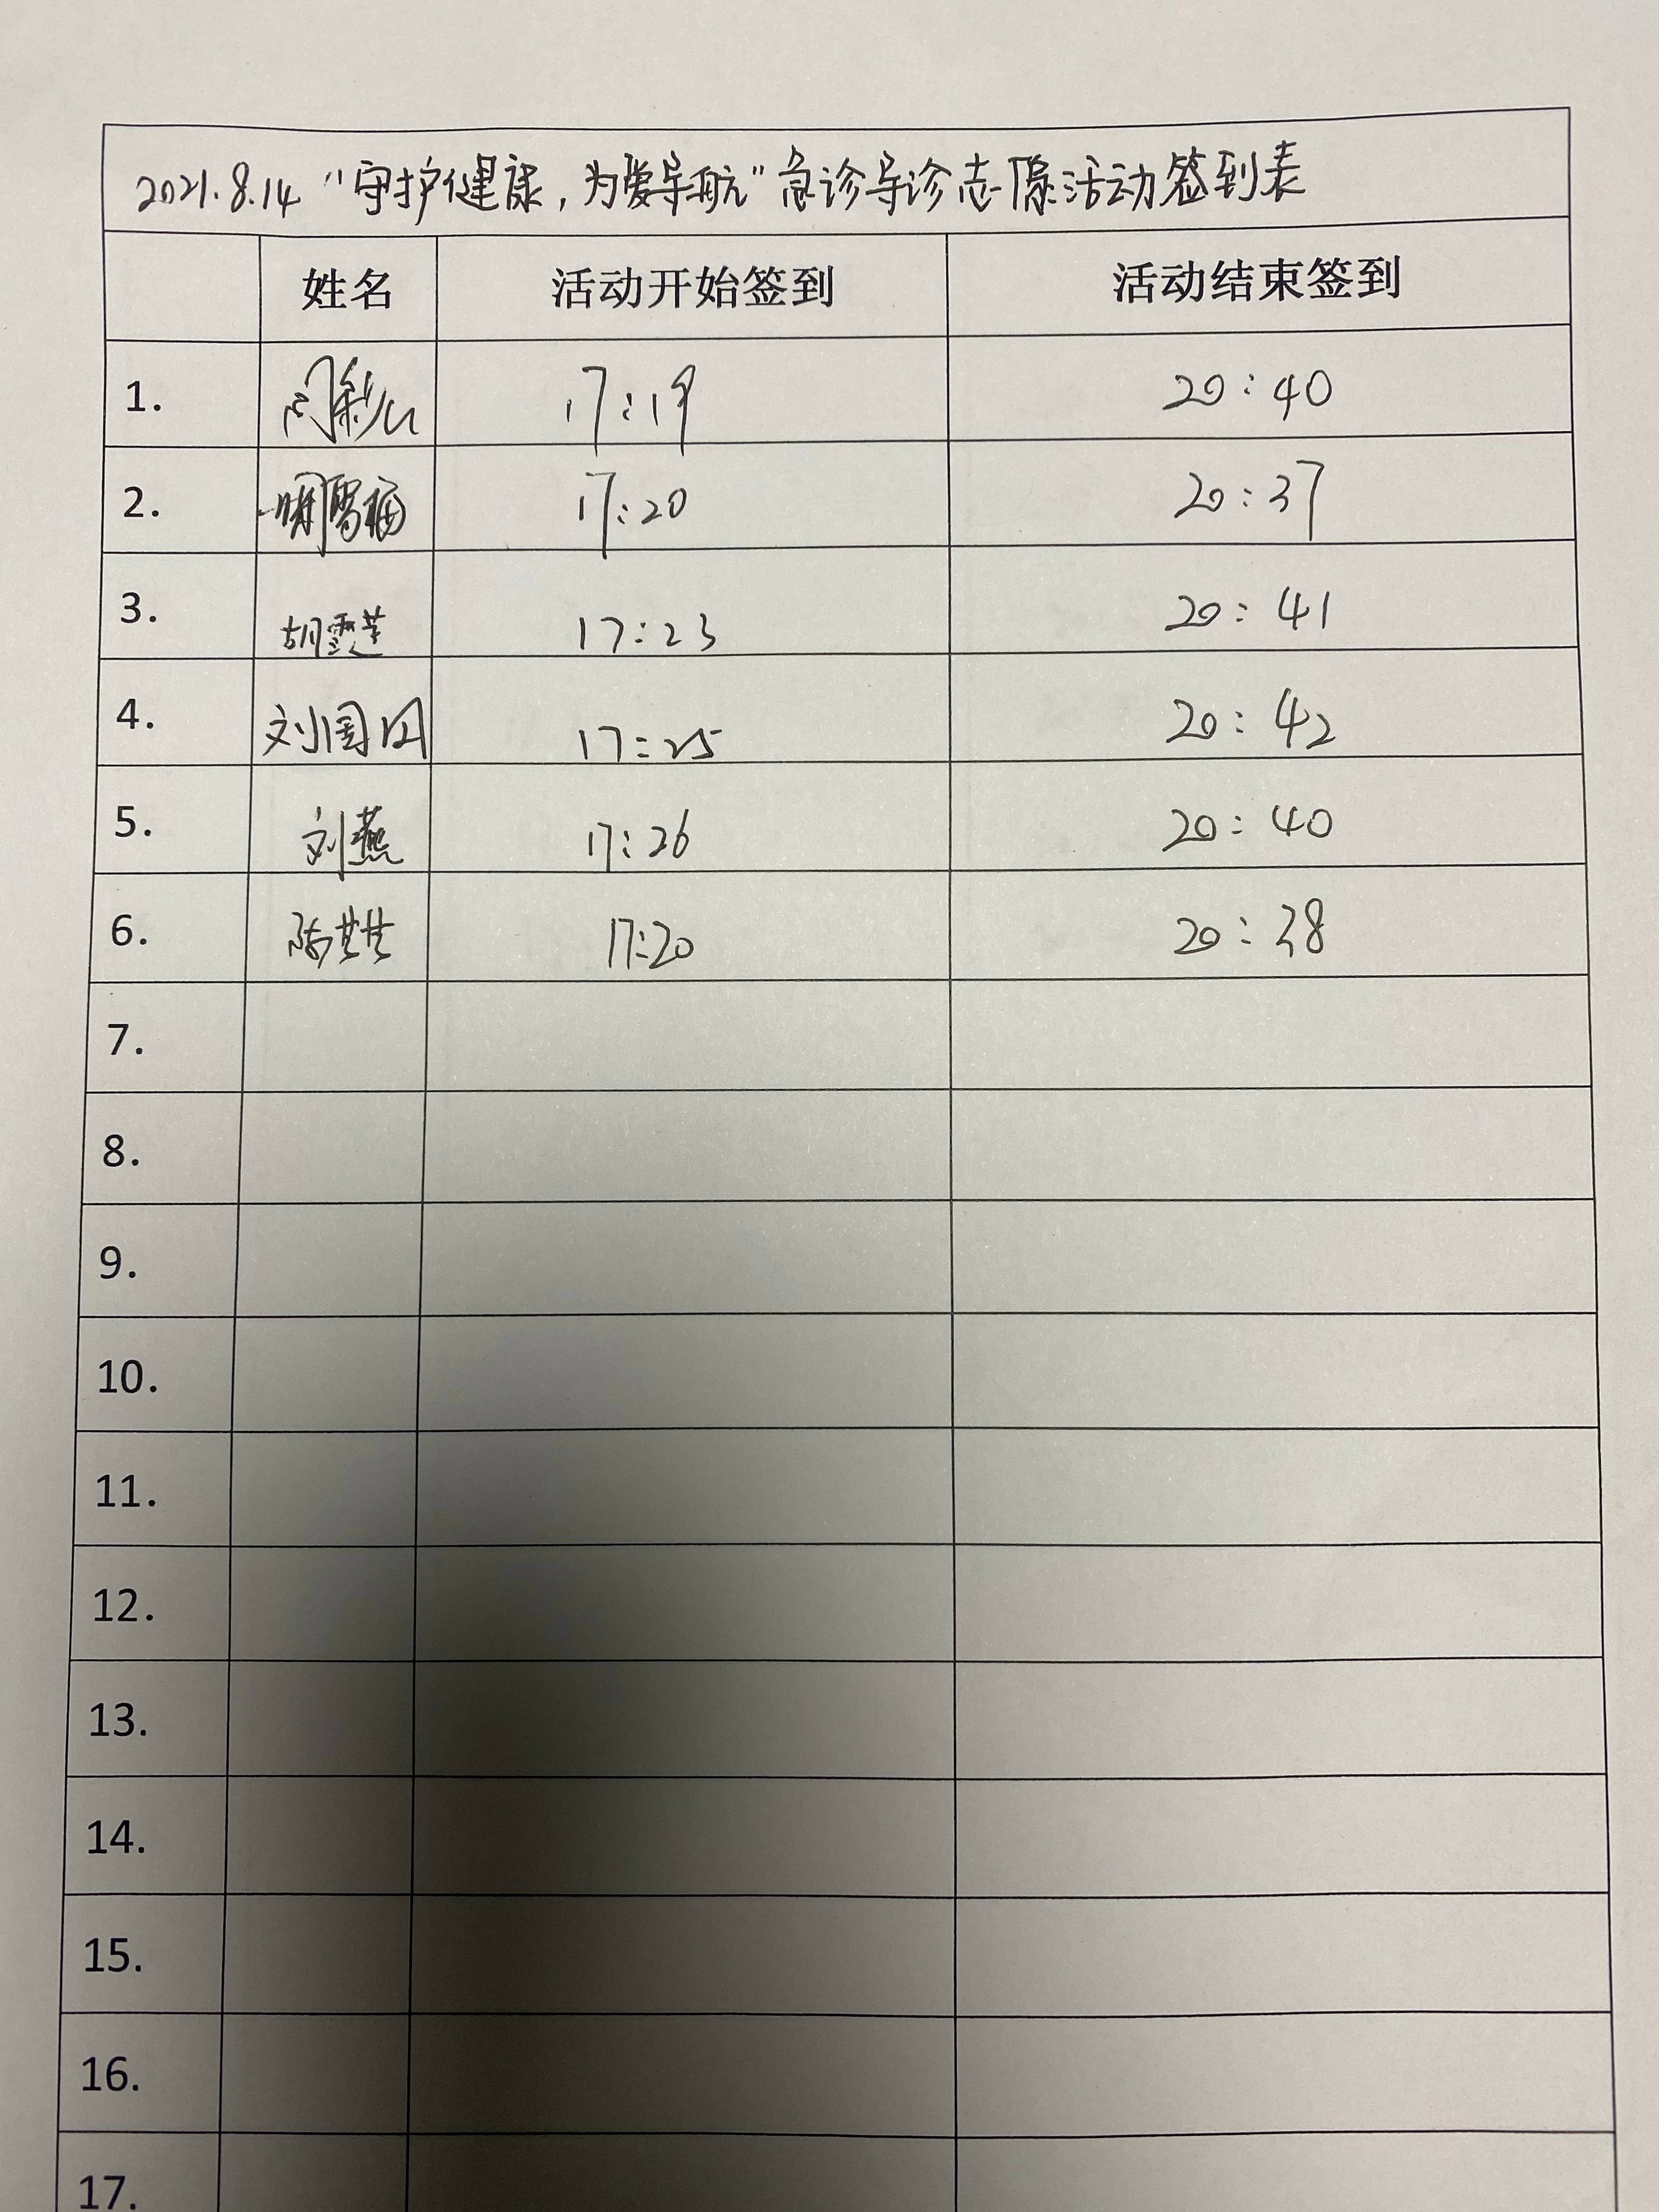 2021.8.14 "守护健康，为爱导航" 急诊导诊志愿活动签到表
姓名 活动开始签到 活动结束签到
1. 17:19 20:40
2. 17:20 20:37
3. 胡雪莲 17:23 20:41
4. 刘国 17:25 20:42
5. 刘燕 17:26 20:40
6. 陈 17:20 20:38
7.
8.
9.
10.
11.
12.
13.
14.
15.
16.
17.